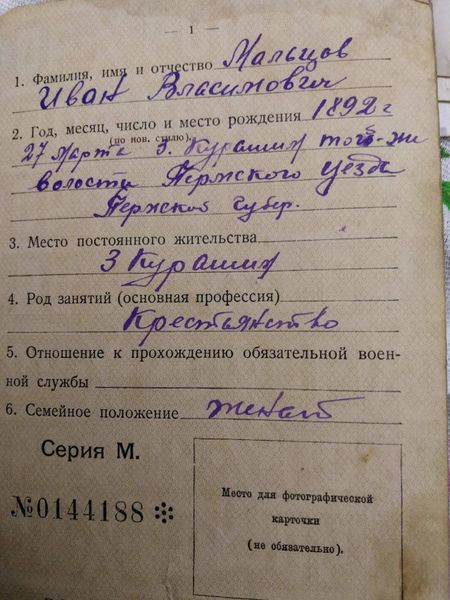 — 1 —
1. Фамилия, имя и отчество Мальцов
Иван Власимович
2. Год, месяц, число и место рождения 1892 г
(по нов. стилю).
27 Марта З. Курашим той-жи
волости Пермского уезда
Пермской губер.
3. Место постоянного жительства
З Курашим
4. Род занятий (основная профессия)
Крестьянство
5. Отношение к прохождению обязательной воен-
ной службы
6. Семейное положение женат
Серия М.
№0144188
Место для фотографической
карточки
(не обязательно).